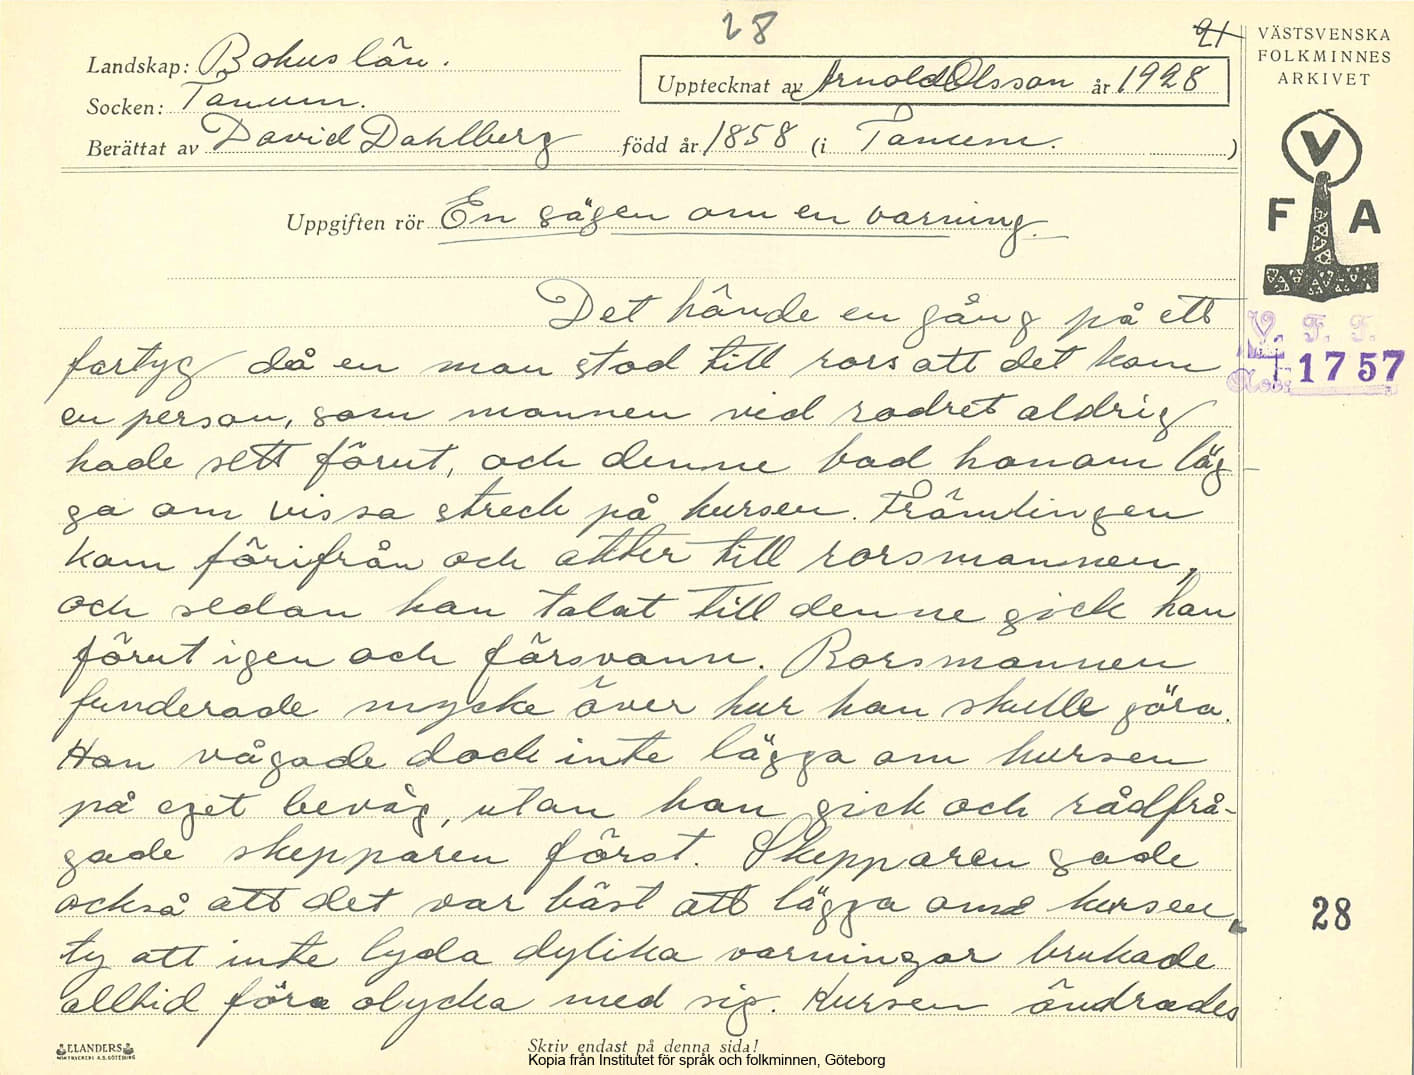 28
21
VÄSTSVENSKA
FOLKMINNES
ARKIVET
Landskap: Bohuslän.
Upptecknat av Arnold Olsson år 1928
Socken: Tanum.
Berättat av David Dahlberg född år 1858 (i Tanum. )
V
F A
Uppgiften rör En sägen om en varning.
V. F. F.
1757
Det hände en gång på ett
fartyg då en man stod till rors att det kom
en person, som mannen vid rodret aldrig
hade sett förut, och denne bad honom läg
ga om vissa streck på kursen. Främlingen
kom förifrån och akter till rorsmannen,
och sedan han talat till denne gick han
förut igen och försvann. Rorsmannen
funderade mycke över hur han skulle göra.
Han vågade dock inte lägga om kursen
på eget bevåg, utan han gick och rådfrå-
gade skepparen först. Skepparen sade
också att det var bäst att lägga om kursen,
ty att inte lyda dylika varningar brukade
alltid föra olycka med sig. Kursen ändrades
28
ELANDERS
Skriv endast på denna sida!
Kopia från Institutet för språk och folkminnen, Göteborg